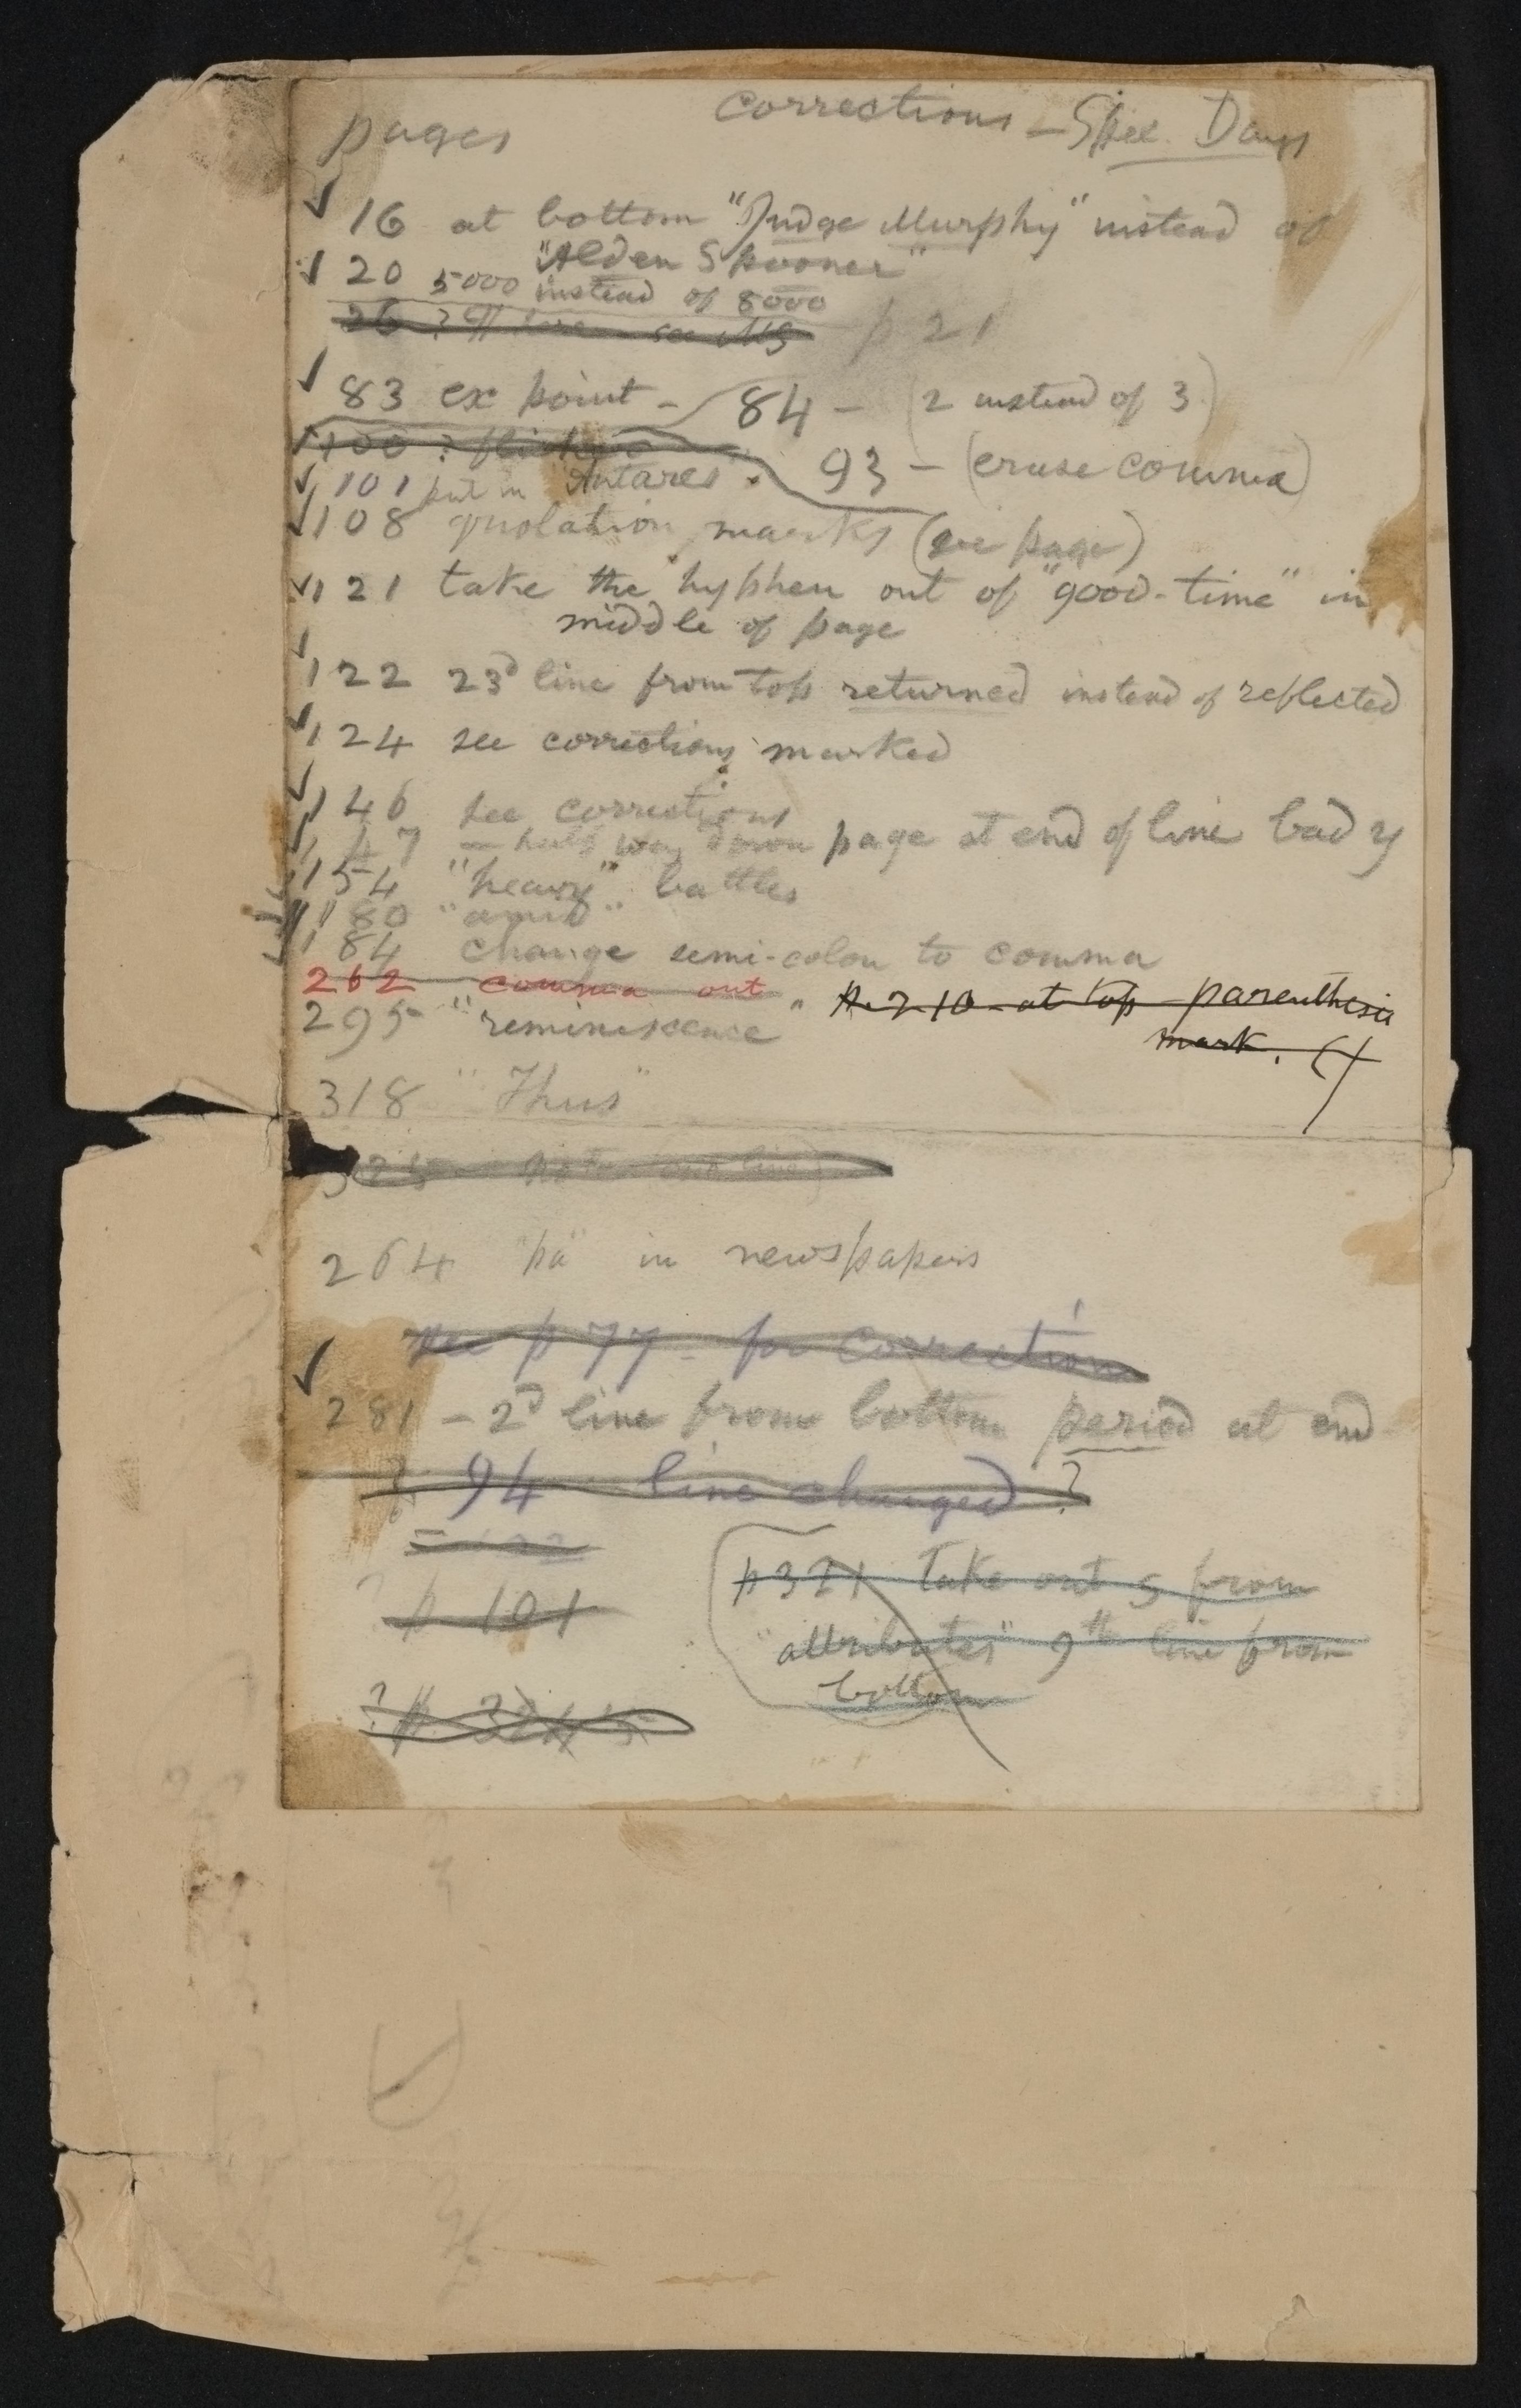 corrections – Spec. Days
pages
16 at bottom "Judge Murphy" instead of
"Alden Spooner"
20 5000 instead of 8000
26 ? ¶ see MS p 21
83 ex point – 84 – (2 instead of 3)
100 ?
93 – (erase comma)
101 put in "Antares"
108 quotation marks (see page)
121 take the hyphen out of "good-time" in
middle of page
122 23d line from top returned instead of reflected
124 see corrections marked
146 see corrections
half way down page at end of line bad y
154 "heavy" battles
180 "amid"
184 change semi-colon to comma
262 comma out
p. 210 at top parenthesis
mark. (
295 "reminiscence"
318 "Thus"
325
264 "pa" in newspapers
see p 77 – for correction
281 – 2d line from bottom period at end
? 94 line changed ?
? p 101
p 321 take out s from
"attributes" 9th line from
bottom
? p.